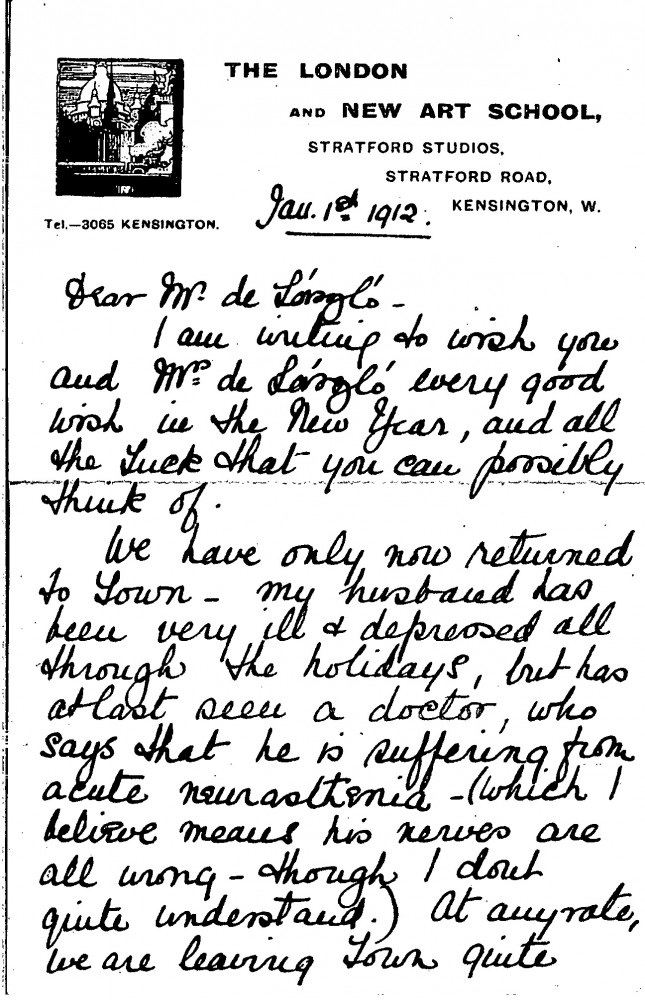 THE LONDON
AND NEW ART SCHOOL,
STRATFORD STUDIOS,
STRATFORD ROAD,
KENSINGTON, W.
Tel.—3065 KENSINGTON.
Jan. 1st 1912.
Dear Mr. de László -
I am writing to wish you
and Mrs de László every good
wish in the New Year, and all
the Luck that you can possibly
think of.
We have only now returned
to Town - my husband has
been very ill & depressed all
through the holidays, but has
at last seen a doctor, who
says that he is suffering from
acute neurasthenia - (which I
believe means his nerves are
all wrong - though I dont
quite understand.) At anyrate,
we are leaving Town quite